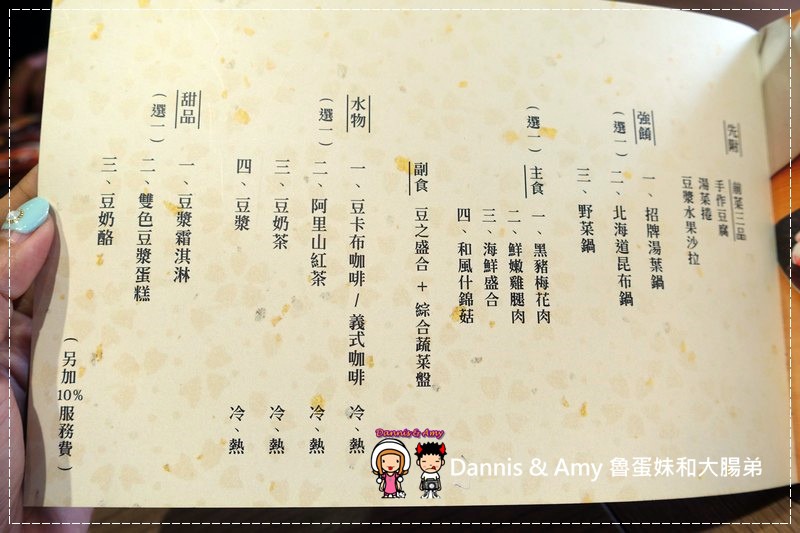 先附
前菜三品
手作豆腐
湯菜捲
豆漿水果沙拉
強餚
(選一)
一、招牌湯葉鍋
二、北海道昆布鍋
三、野菜鍋
主食
(選一)
一、黑豬梅花肉
二、鮮嫩雞腿肉
三、海鮮盛合
四、和風什錦菇
副食
豆之盛合 + 綜合蔬菜盤
水物
(選一)
一、豆卡布咖啡 / 義式咖啡 冷、熱
二、阿里山紅茶 冷、熱
三、豆奶茶 冷、熱
四、豆漿 冷、熱
甜品
(選一)
一、豆漿霜淇淋
二、雙色豆漿蛋糕
三、豆奶酪
(另加10%服務費)
Dannis & Amy
Dannis & Amy 魯蛋妹和大腸弟